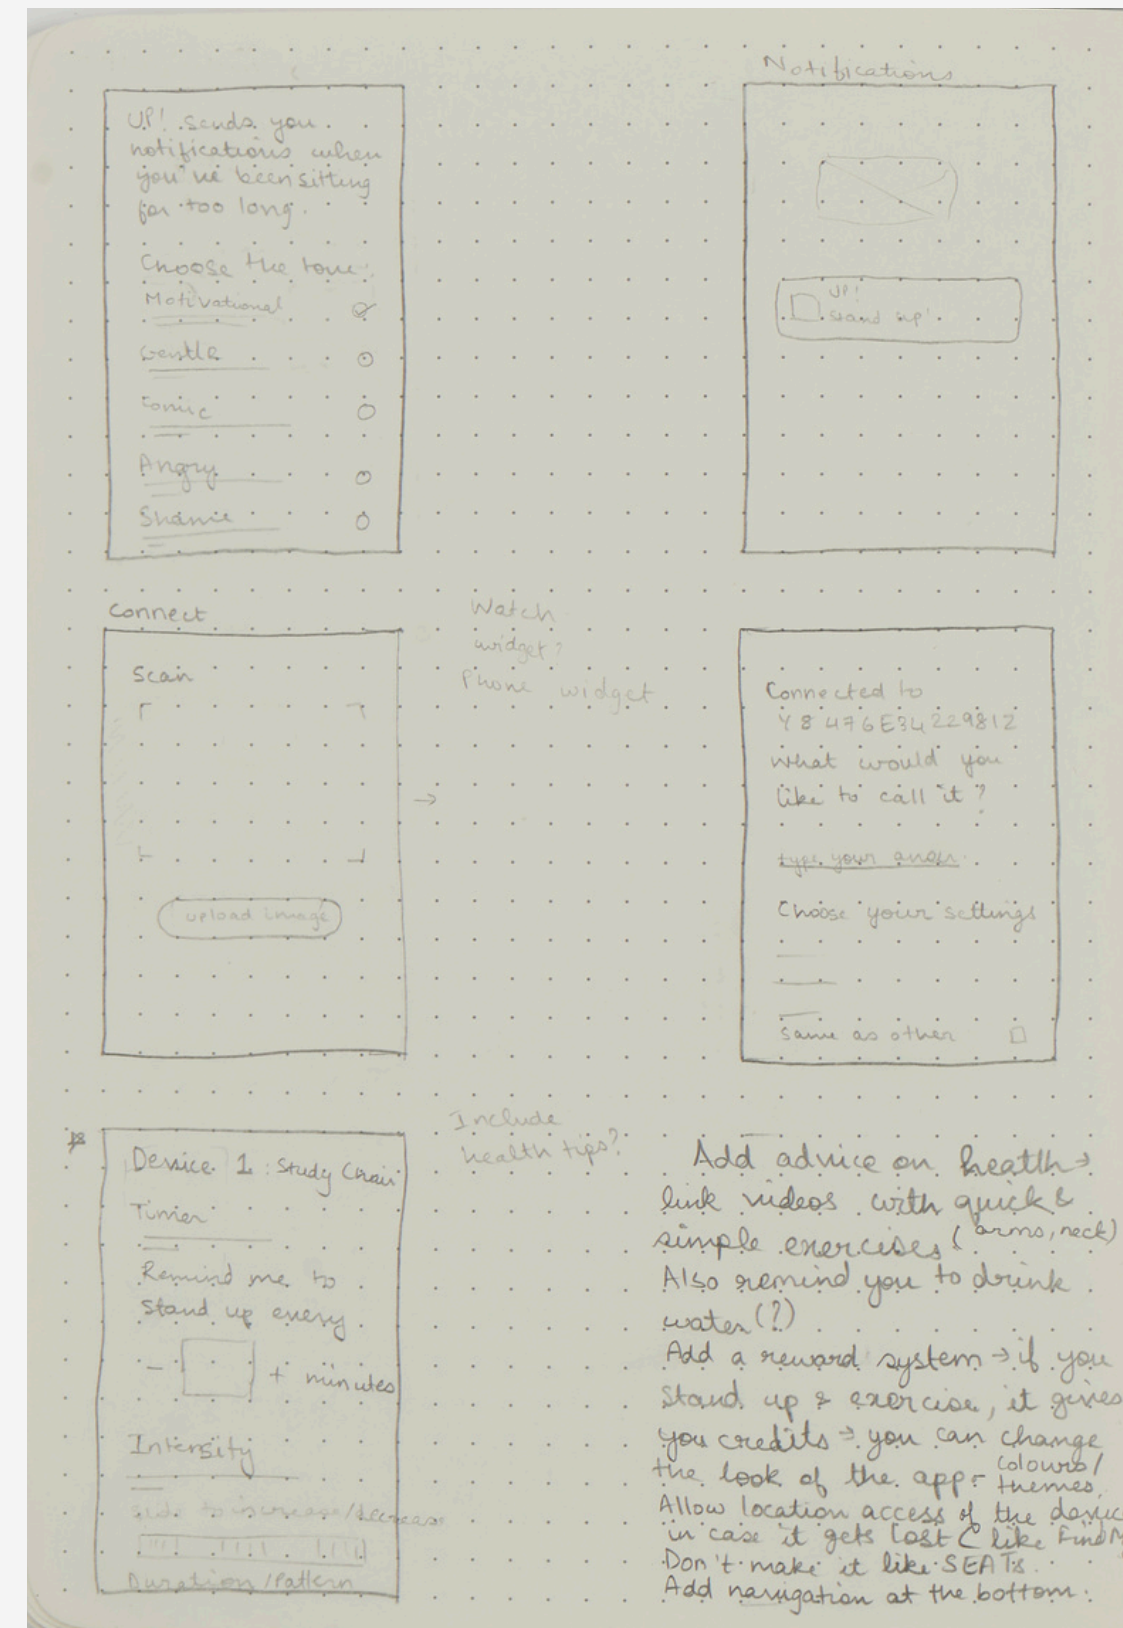 UP! sends you
notifications when
you've been sitting
for too long.
Choose the tone:
Motivational
Gentle
Comic
Angry
Shame
Notifications
UP!
Stand up!
Connect
Scan
upload image
Watch
widget?
Phone widget
Connected to
Y8476E34229812
What would you
like to call it?
type your
Choose your settings
Same as other
Device 1: Study Chair
Timer
Remind me to
stand up every
- + minutes
Intensity
Slide to increase/decrease
Duration/Pattern
Include
health tips?
Add advice on health→
link videos with quick &
simple exercises (arms, neck)
Also remind you to drink
water(?)
Add a reward system → if you
stand up & exercise, it gives
you credits → you can change
the look of the app - colours/
themes.
Allow location access of the devic
in case it gets lost (like FindM
Don't make it like SEATs.
Add navigation at the bottom.